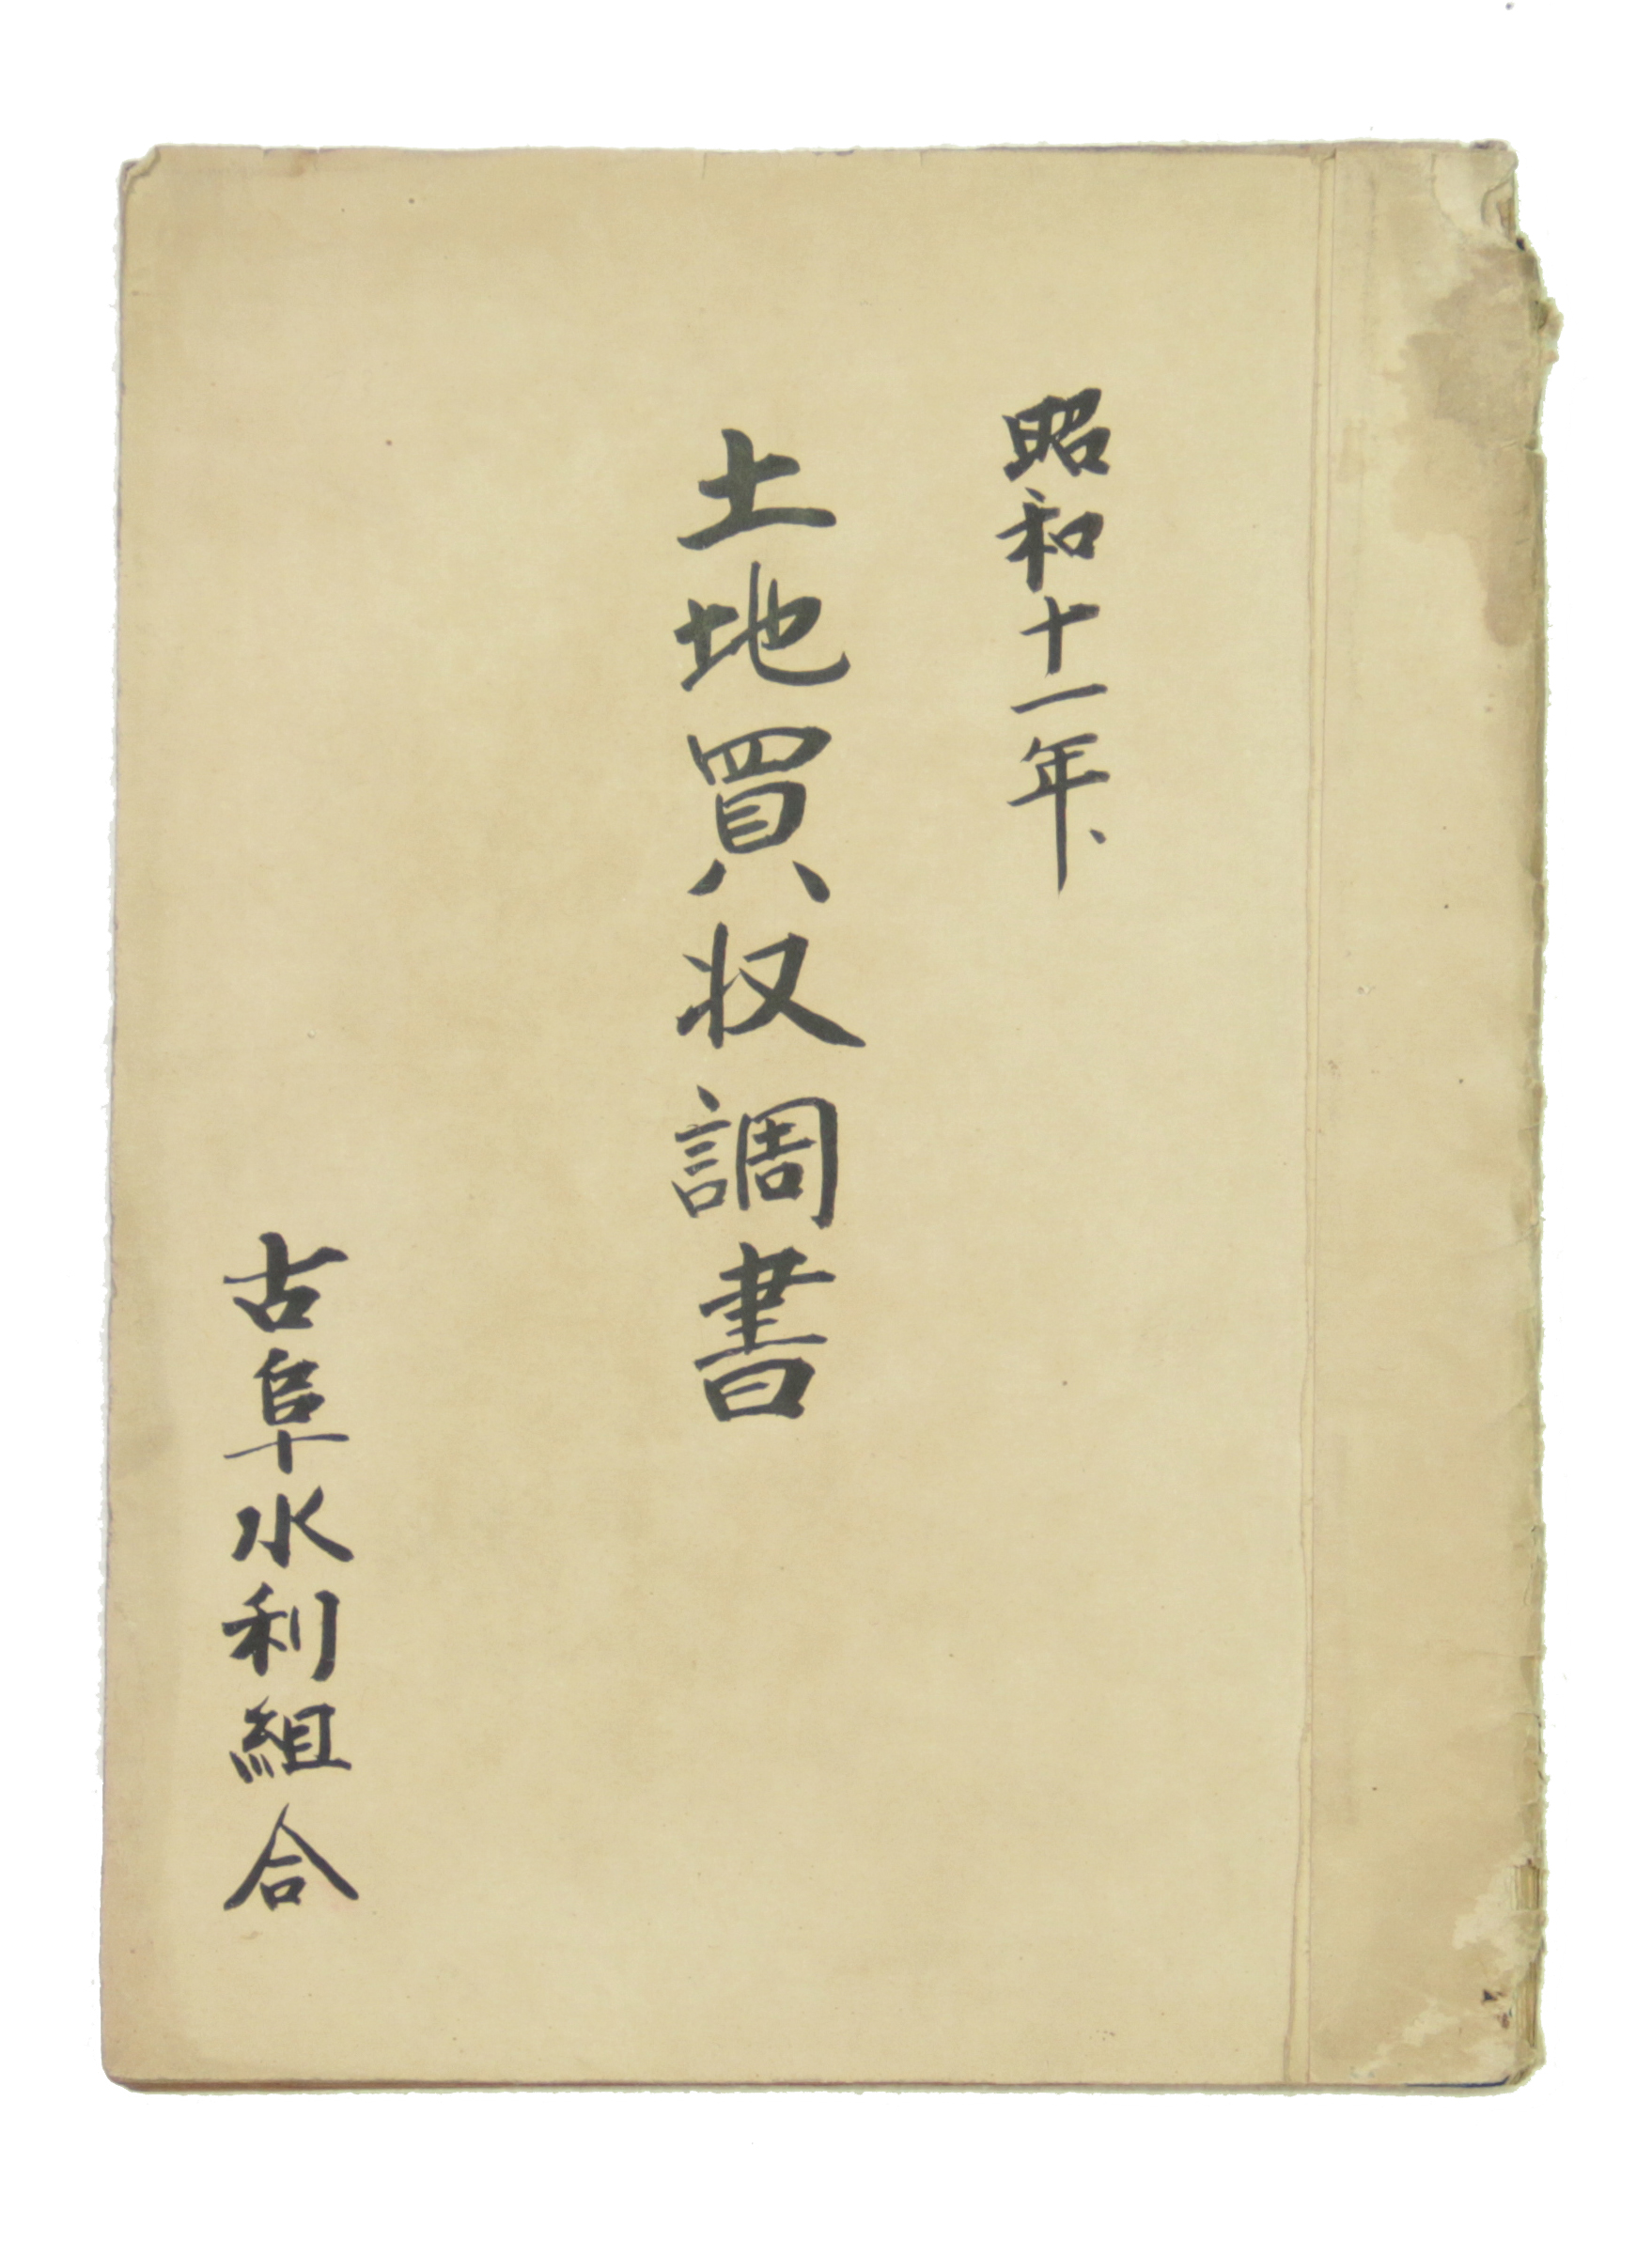 昭和十一年、
土地買収調書
古阜水利組合